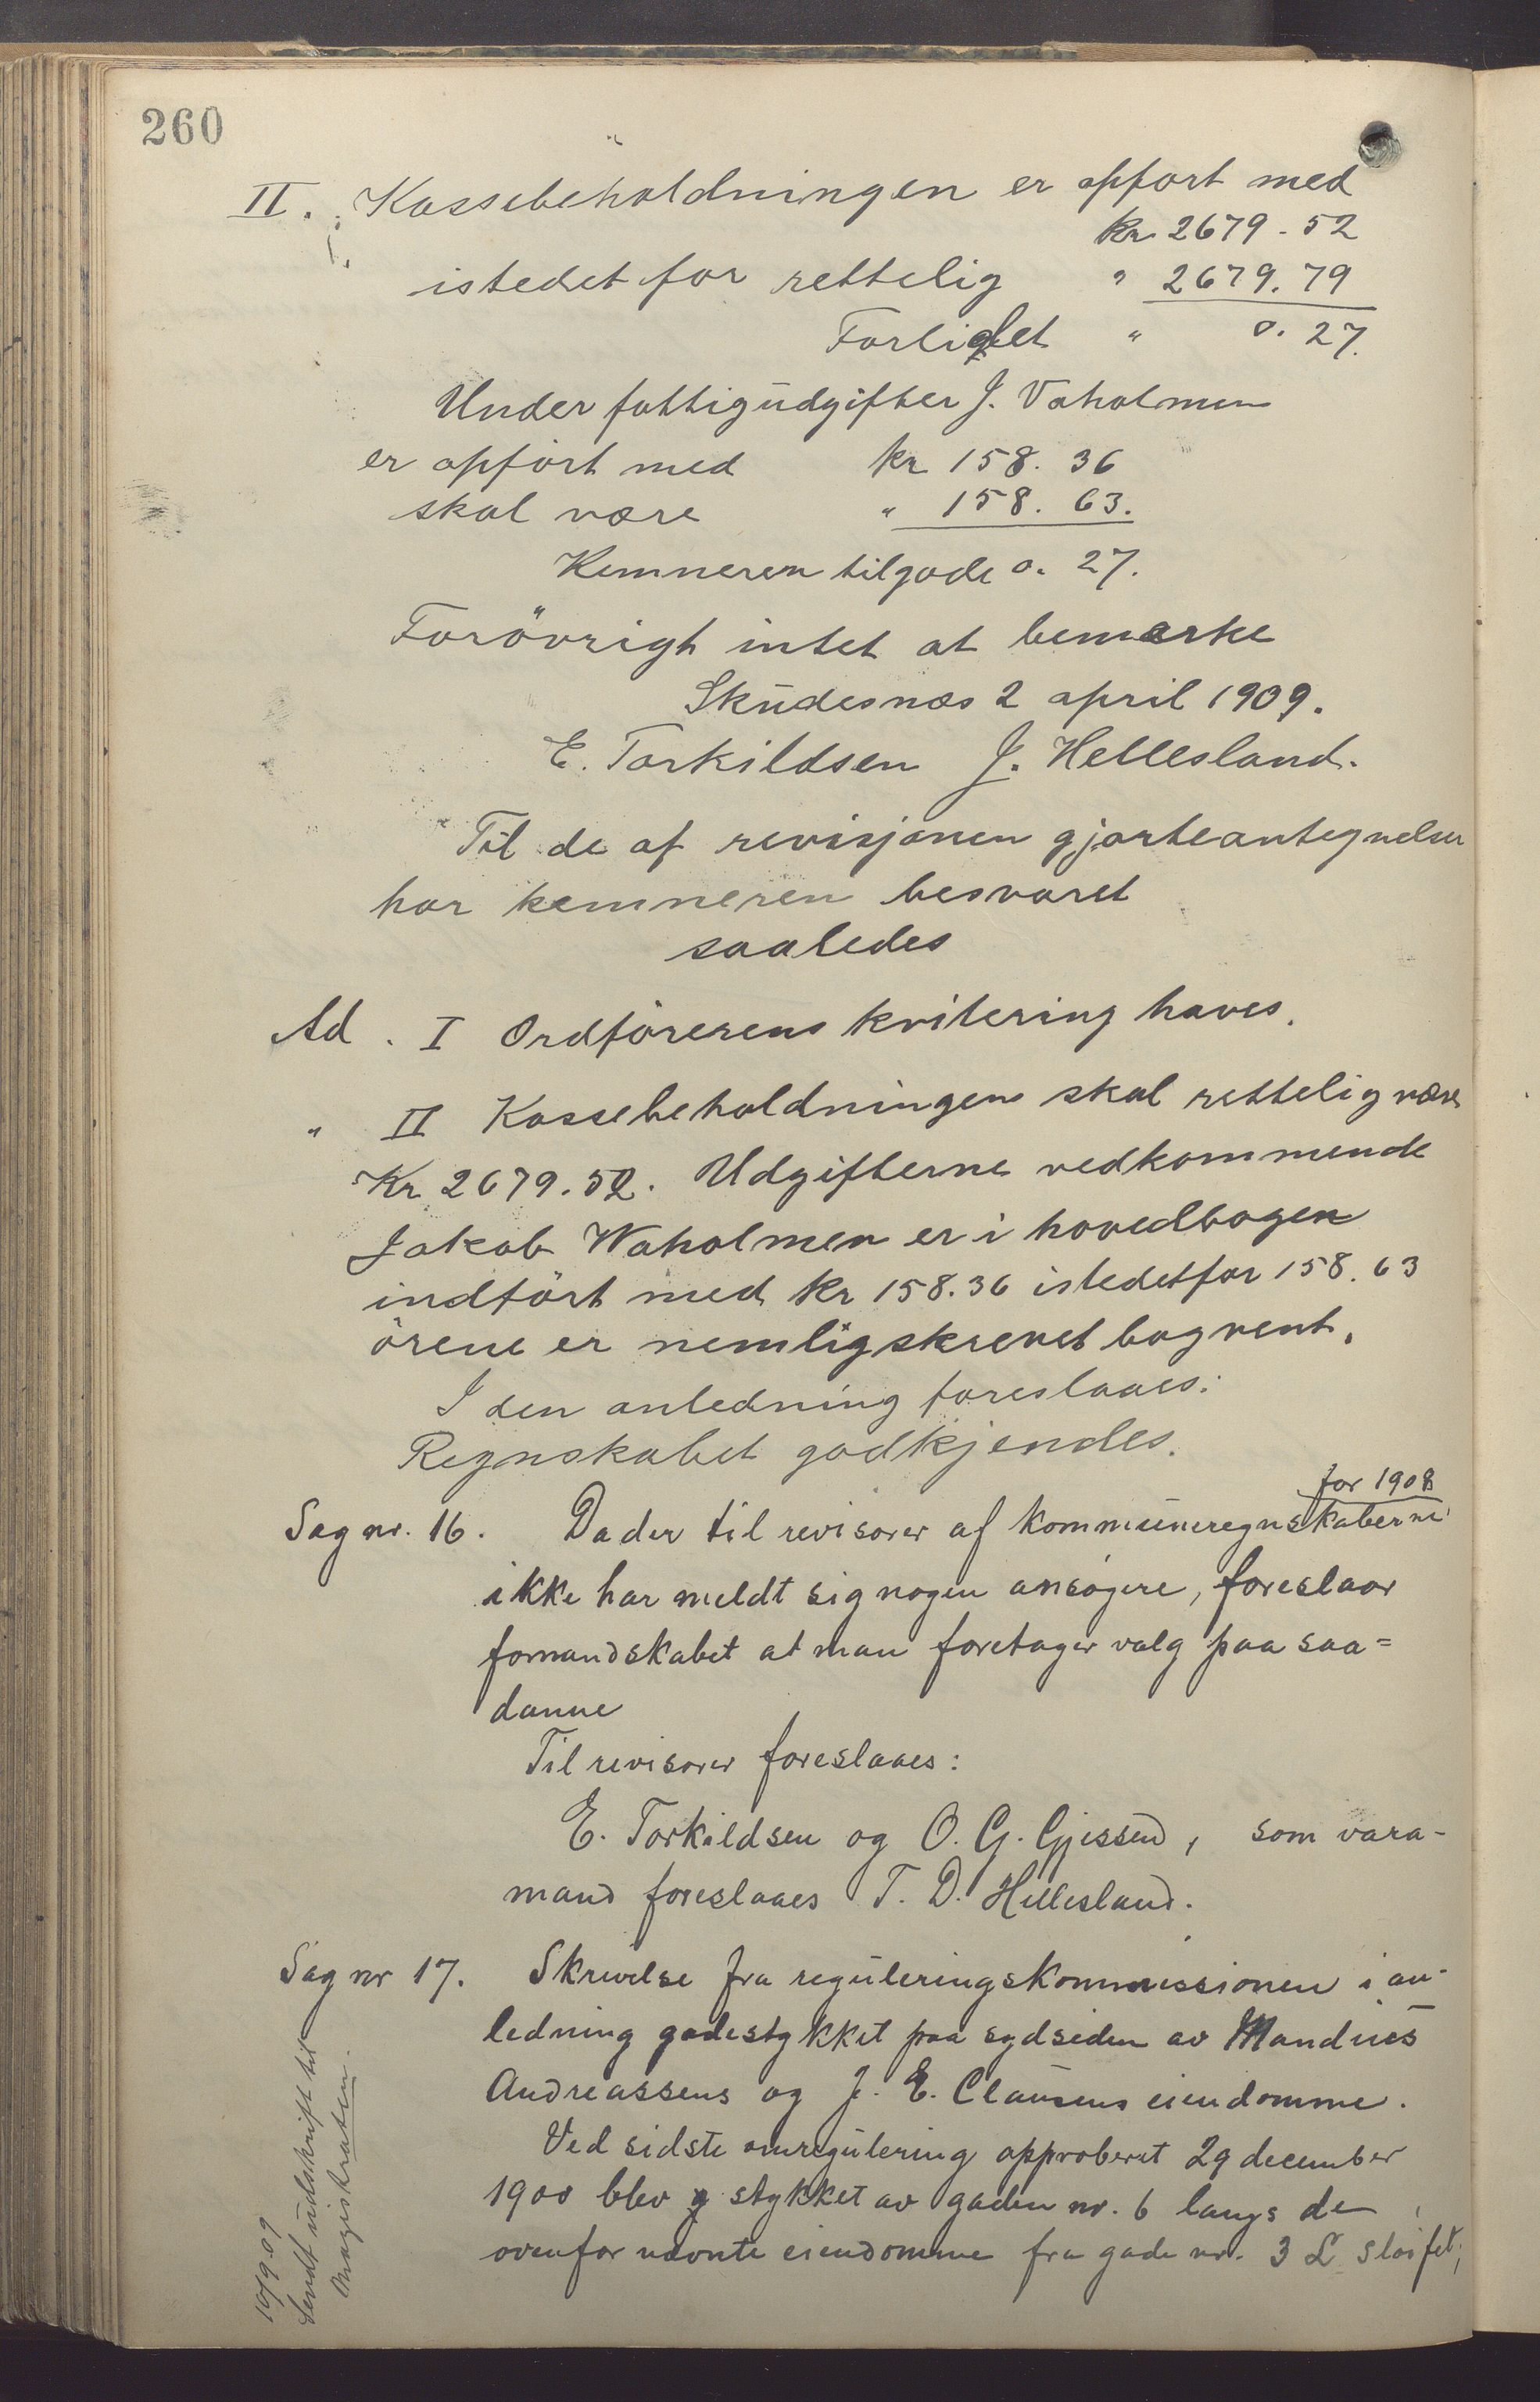 260
II. Kassebeholdningen er opført med
kr 2679-52
istedet for rettelig " 2679.79
Forliglet " 0.27.
Under fattigudgifter J. Vaholmen
er opført med kr 158.36
skal være " 158.63.
Kemneren tilgode 0.27.
Forövrigt intet at bemærke
Skudesnæs 2 april 1909.
E. Torkildsen J. Hellesland.
Til de af revisjonen gjorte antegnelser
har kemneren besvaret
saaledes
Ad. I Ordförerens kvitering haves.
" II Kassebeholdningen skal rettelig være
Kr 2679.52. Udgifterne vedkommende
Jakob Waholmen er i hovedbogen
indfört med kr 158.36 istedetfor 158.63
örene er nemlig skrevet bagvent.
I den anledning foreslaaes:
Regnskabet godkjendes.
for 1908
Sag nr. 16. Da der til revisorer af kommuneregnskaberne
ikke har meldt sig nogen ansøgere, foreslaar
formandskabet at man foretager valg paa saa=
danne
Til revisorer foreslaaes:
E. Torkildsen og O. G. Gjessen, som vara-
mand foreslaaes T. D. Hillesland.
Sag nr 17. Skrivelse fra reguleringskommissionen i an-
ledning gadestykket paa sydsiden av Mandius
Andreassens og J. E. Clausens eiendomme.
Ved sidste omregulering approberet 29 december
1900 blev stykket av gaden nr. 6 langs de
ovenfor nævnte eiendomme fra gade nr. 3 L sløifet;
10/9 09
Sendt udskrift til
Magistraten.